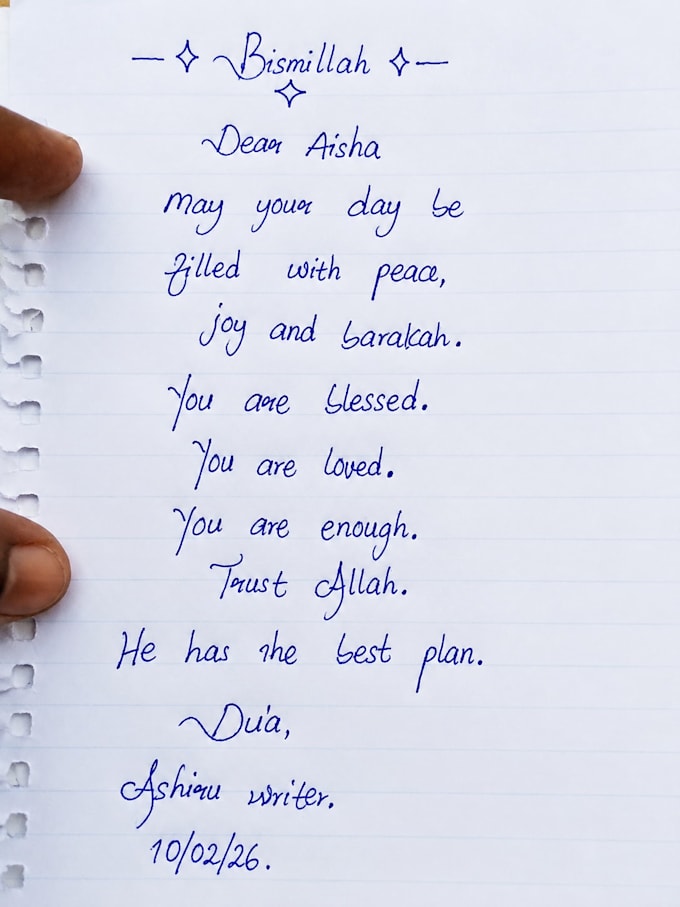 — ✧ Bismillah ✧ —
✧
Dear Aisha
may your day be
filled with peace,
joy and barakah.
You are blessed.
You are loved.
You are enough.
Trust Allah.
He has the best plan.
Du'a,
Ashiru writer.
10/02/26.